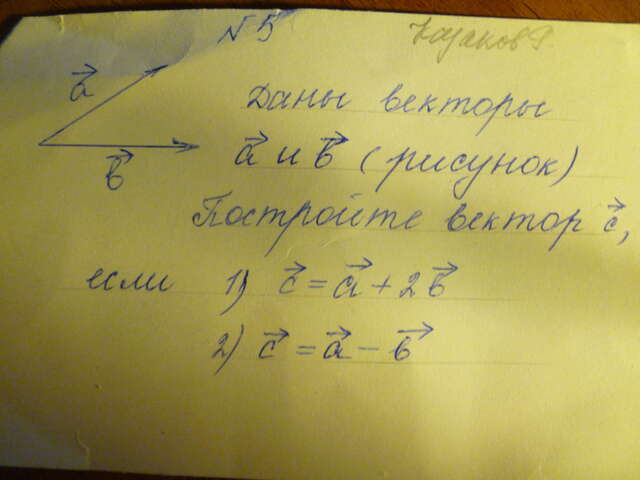 N 5
Казаков Р.
a⃗
b⃗
Даны векторы
a⃗ и b⃗ (рисунок)
Постройте вектор c⃗,
если 1) c⃗ = a⃗ + 2b⃗
2) c⃗ = a⃗ − b⃗